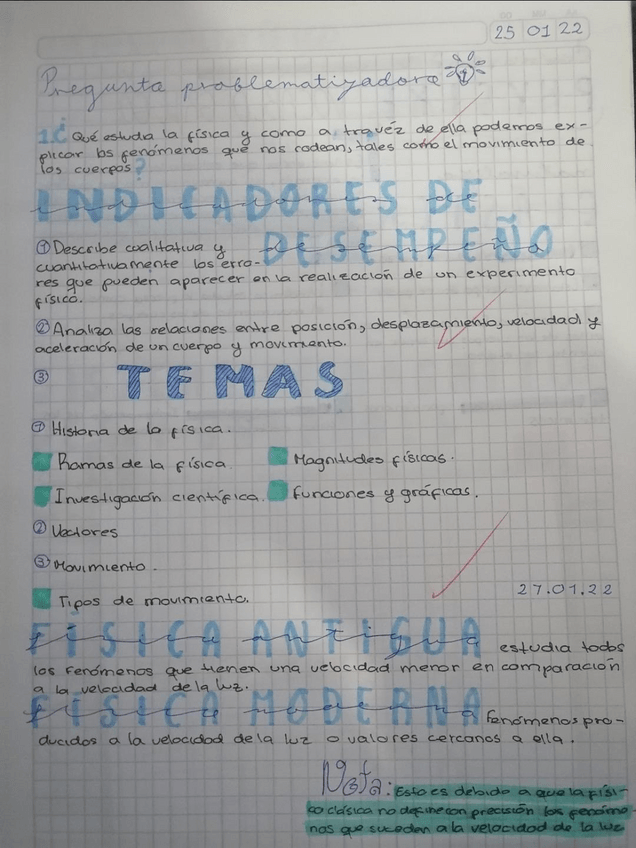 25 01 22
Pregunta problematizadora
1.¿ Qué estudia la física y como a travéz de ella podemos ex-
plicar los fenómenos que nos rodean, tales como el movimiento de
los cuerpos?
INDICADORES DE
DESEMPEÑO
① Describe cualitativa y
cuantitativamente los erro-
res que pueden aparecer en la realización de un experimento
físico.
② Analiza las relaciones entre posición, desplazamiento, velocidad y
aceleración de un cuerpo y movimiento.
③
TEMAS
① Historia de la física.
Ramas de la física. Magnitudes físicas.
Investigación científica. Funciones y gráficas.
② Vectores
③ Movimiento.
27.01.22
Tipos de movimiento.
FÍSICA ANTIGUA estudia todos
los fenómenos que tienen una velocidad menor en comparación
a la velocidad de la luz.
FÍSICA MODERNA fenómenos pro-
ducidos a la velocidad de la luz o valores cercanos a ella.
Nota: Esto es debido a que la físi-
ca clásica no define con precisión los fenóme-
nos que suceden a la velocidad de la luz